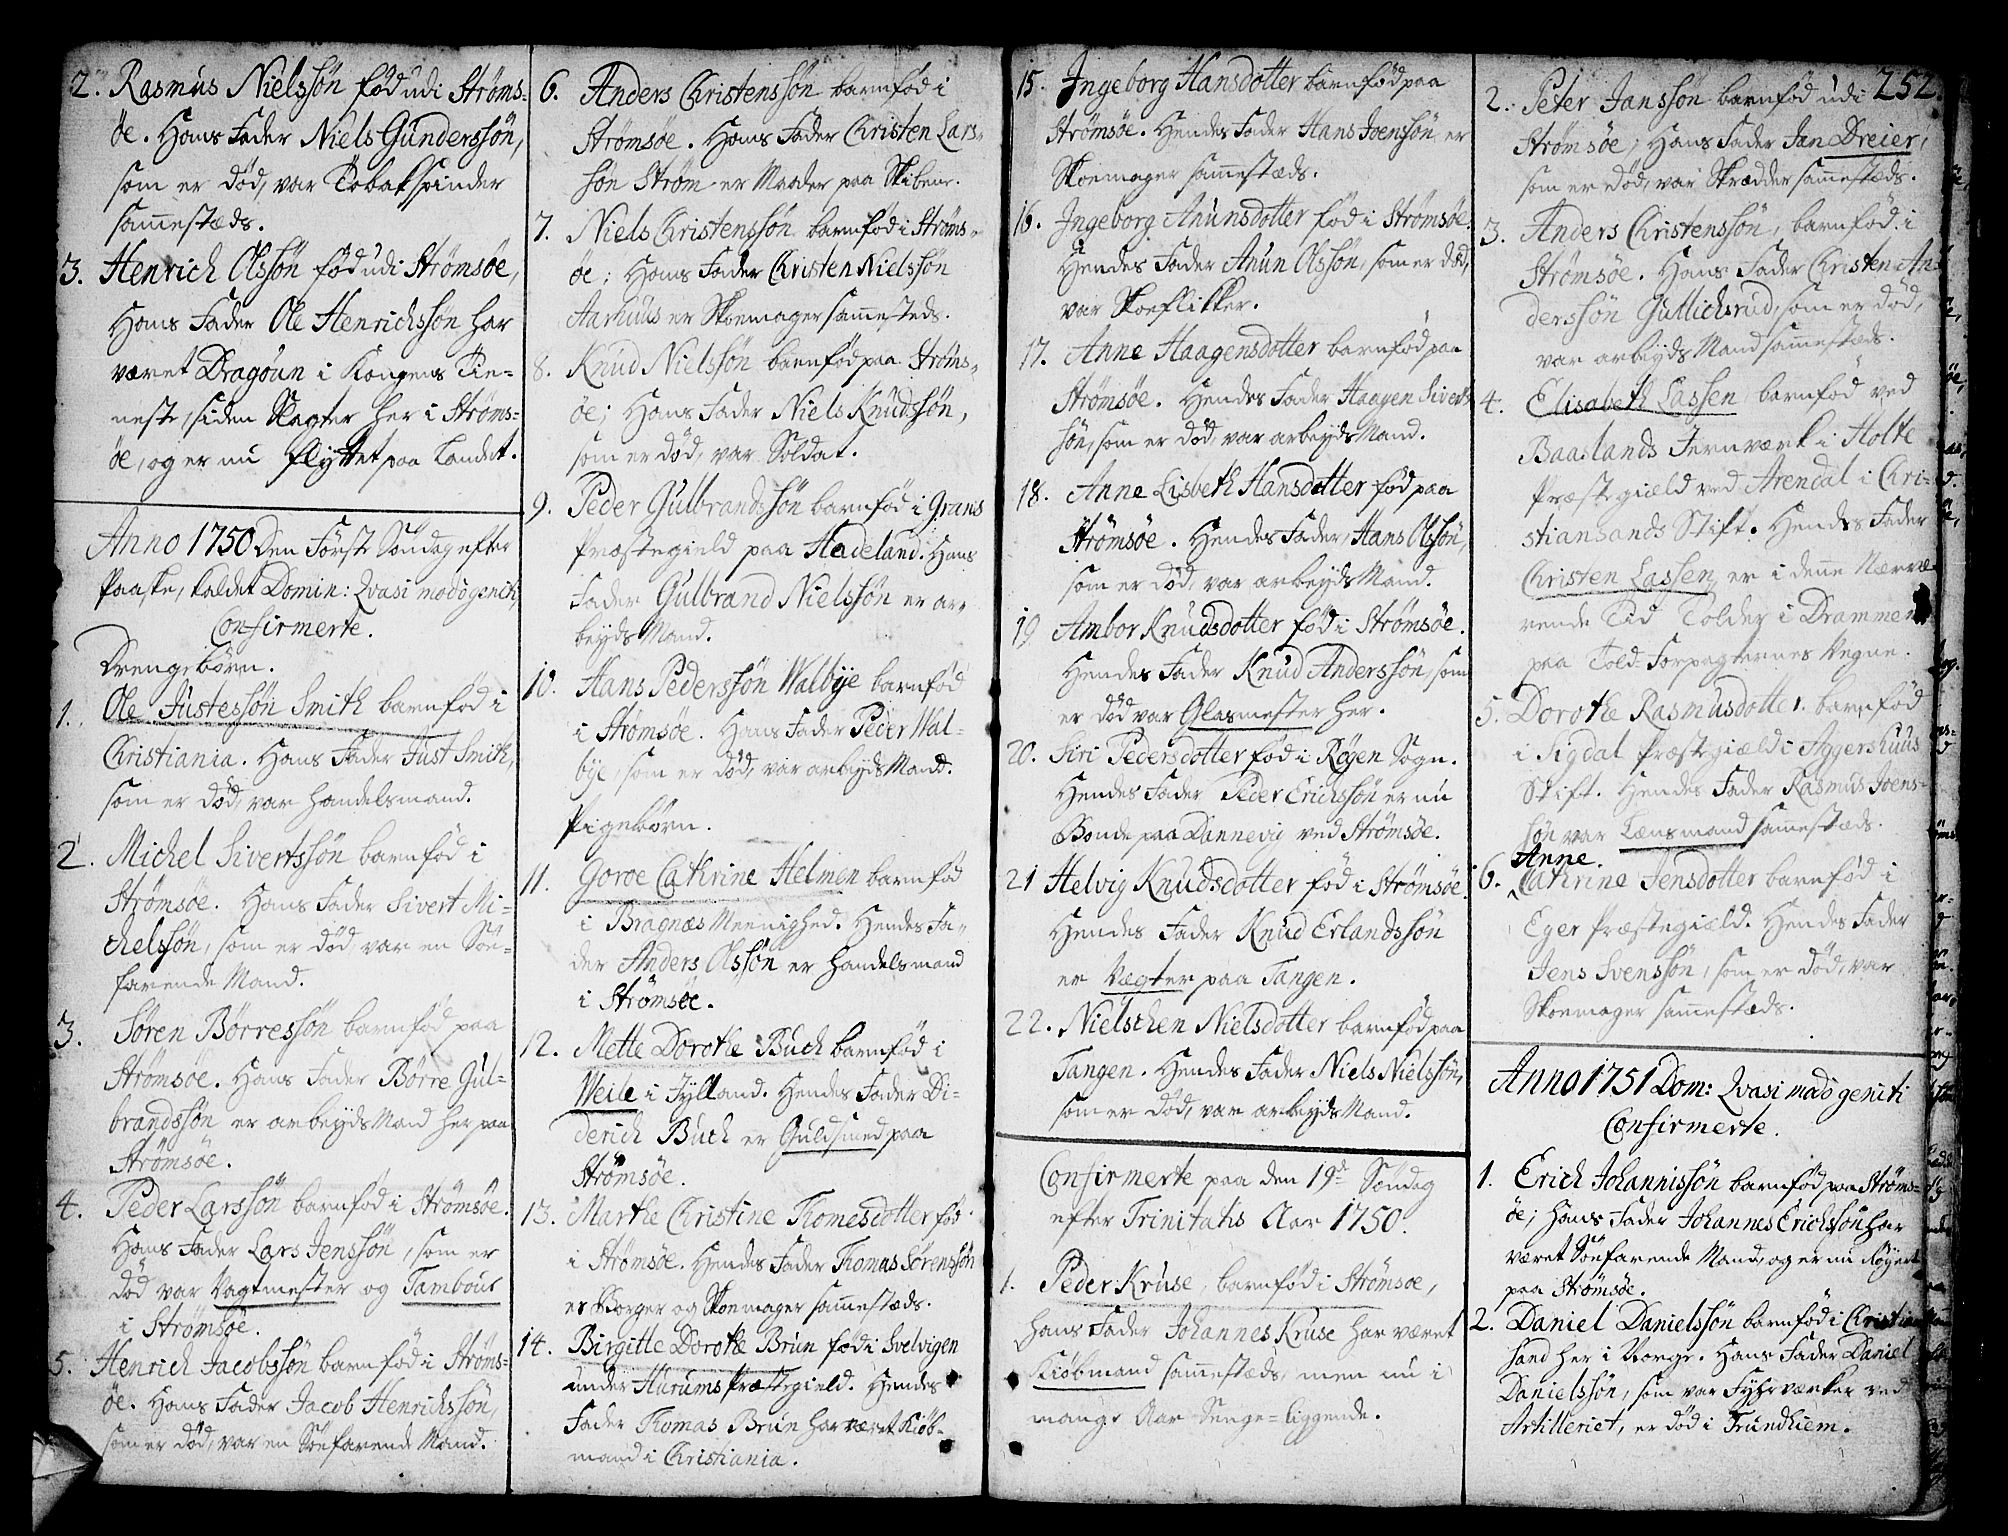 2. Rasmus Nielssøn fød udi Strøms-
øe. Hans Fader Niels Gunderssøn,
som er død, var Tobakspinder
sam̄estæds.
3. Henrich Olssøn fød udi Strømsøe,
Hans Fader Ole Henrichssøn har
været Dragoun i Kongens Tie-
neste, siden Slagter her i Strøms-
øe, og er nu flyttet paa Landet.
Anno 1750 Den Første Søndag efter
Paaske, kaldet Domin: Qvasi modogenit,
Confirmerte.
Drengebörn.
1. Ole Justessøn Smith barnfød i
Christiania. Hans Fader Just Smith,
som er død, var Handelsmand.
2. Michel Sivertssøn barnfød i
Strømsøe. Hans Fader Sivert Mi-
chelssøn, som er død, var en Søe-
farende Mand.
3. Søren Børressøn barnfød paa
Strømsøe. Hans Fader Børre Gul-
brandssøn er arbeyds Mand her paa
Strømsøe.
4. Peder Larssøn barnfød i Strømsøe.
Hans Fader Lars Jenssøn, som er
død var Vagtmester og Tambour
i Strømsøe.
5. Henrich Jacobssøn barnfød i Strøms-
øe. Hans Fader Jacob Henrichssøn,
som er død, var en Søefarende Mand.
6. Anders Christenssøn barnfød i
Strømsøe. Hans Fader Christen Lars-
søn Strøm er Maader paa Skibene.
7. Niels Christenssøn barnfød i Strøms-
øe; Hans Fader Christen Nielssøn
Aarhuus er Skoemager sam̄esteds.
8. Knud Nielssøn barnfød paa Strøms-
øe; Hans Fader Niels Knudssøn,
som er død, var Soldat.
9. Peder Gulbrandssøn barnfød i Grans
Præstegield paa Hadeland. Hans
Fader Gulbrand Nielssøn er ar-
beyds Mand.
10. Hans Pederssøn Walbye barnfød
i Strømsøe. Hans Fader Peder Wal-
bye, som er død, var arbeyds Mand.
Pigebörn.
11. Goroe Cathrine Helmen barnfød
i Bragnæs Meenighed. Hendes Fa-
der Anders Olssøn er Handelsmand
i Strømsøe.
12. Mette Dorothe Buch barnfød i
Weile i Jylland. Hendes Fader Di-
derich Buch er Guldsmed paa
Strømsøe.
13. Marthe Christine Thomesdotter fød
i Strømsøe. Hendes Fader Thomas Sørenssøn
er Borger og Skoemager sam̄estæds.
14. Birgitte Dorothe Brun fød i Svelvigen
under Hurums Præstegield. Hendes
Fader Thomas Brun har været Kiøb-
mand i Christiania.
15. Ingeborg Hansdotter barnfød paa
Strømsøe. Hendes Fader Hans Joenssøn er
Skoemager sam̄estæds.
16. Ingeborg Anunsdotter fød i Strømsøe.
Hendes Fader Anun Olssøn, som er død,
var Skoeflikker.
17. Anne Haagensdotter barnfød paa
Strømsøe. Hendes Fader Haagen Siverts
søn, som er død, var arbeyds Mand.
18. Anne Lisbeth Hansdotter fød paa
Strømsøe. Hendes Fader Hans Olssøn,
som er død, var arbeyds Mand.
19 Ambor Knudsdotter fød i Strømsøe.
Hendes Fader Knud Anderssøn, som
er død var Glasmester her.
20. Siri Pedersdotter fød i Røyen Sogn.
Hendes Fader Peder Erichssøn er nu
Bonde paa Dannevig ved Strømsøe.
21 Helvig Knudsdotter fød i Strømsøe.
Hendes Fader Knud Erlandssøn
er Vægter paa Tangen.
22. Nielschen Nielsdotter barnfød paa
Tangen. Hendes Fader Niels Nielssøn,
som er død, var arbeyds Mand.
Confirmerte paa den 19de Søndag
efter Trinitatis Aar 1750.
1. Peder Kruse, barnfød i Strømsøe,
Hans Fader Johannes Kruse har været
Kiøbmand sam̄estæds, men nu i
mange Aar Senge-liggende.
252
2. Peter Janssøn barnfød udi
Strømsøe; Hans Fader Jan Dreier,
som er død, var Skrædder sam̄estæds.
3. Anders Christenssøn, barnfød i
Strømsøe. Hans Fader Christen An-
derssøn Gullichsrud, som er død,
var arbeyds Mand sam̄estæds.
4. Elisabeth Lassen barnfød ved
Baaslands Jernværk i Holte
Præstegiæld ved Arendal i Chri-
stiansands Stift. Hendes Fader
Christen Lassen, er i denne Nærvæ-
rende Tid Tolder i Drammen
paa Told-Forpagternes Vegne.
5. Dorothe Rasmusdotter barnfød
i Sigdal Præstegiæld i Aggershuus
Stift. Hendes Fader Rasmus Joens-
søn var Lænsmand sam̄estæds.
Anne.
6. Cathrine Jensdotter barnfød i
Eger Præstegiæld. Hendes Fader
Jens Svenssøn, som er død, var
Skoemager sam̄estæds.
Anno 1751 Dom: Qvasi modo geniti
Confirmerte.
1. Erich Johannissøn barnfød paa Strøms-
øe; Hans Fader Johannes Erichssøn har
været Søefarende Mand, og er nu Røgert
paa Strømsøe.
2. Daniel Danielssøn barnfød i Christian
sand her i Norge. Hans Fader Daniel
Danielssøn, som var Fyhrværker ved
Artilleriet, er død i Trundhiem.